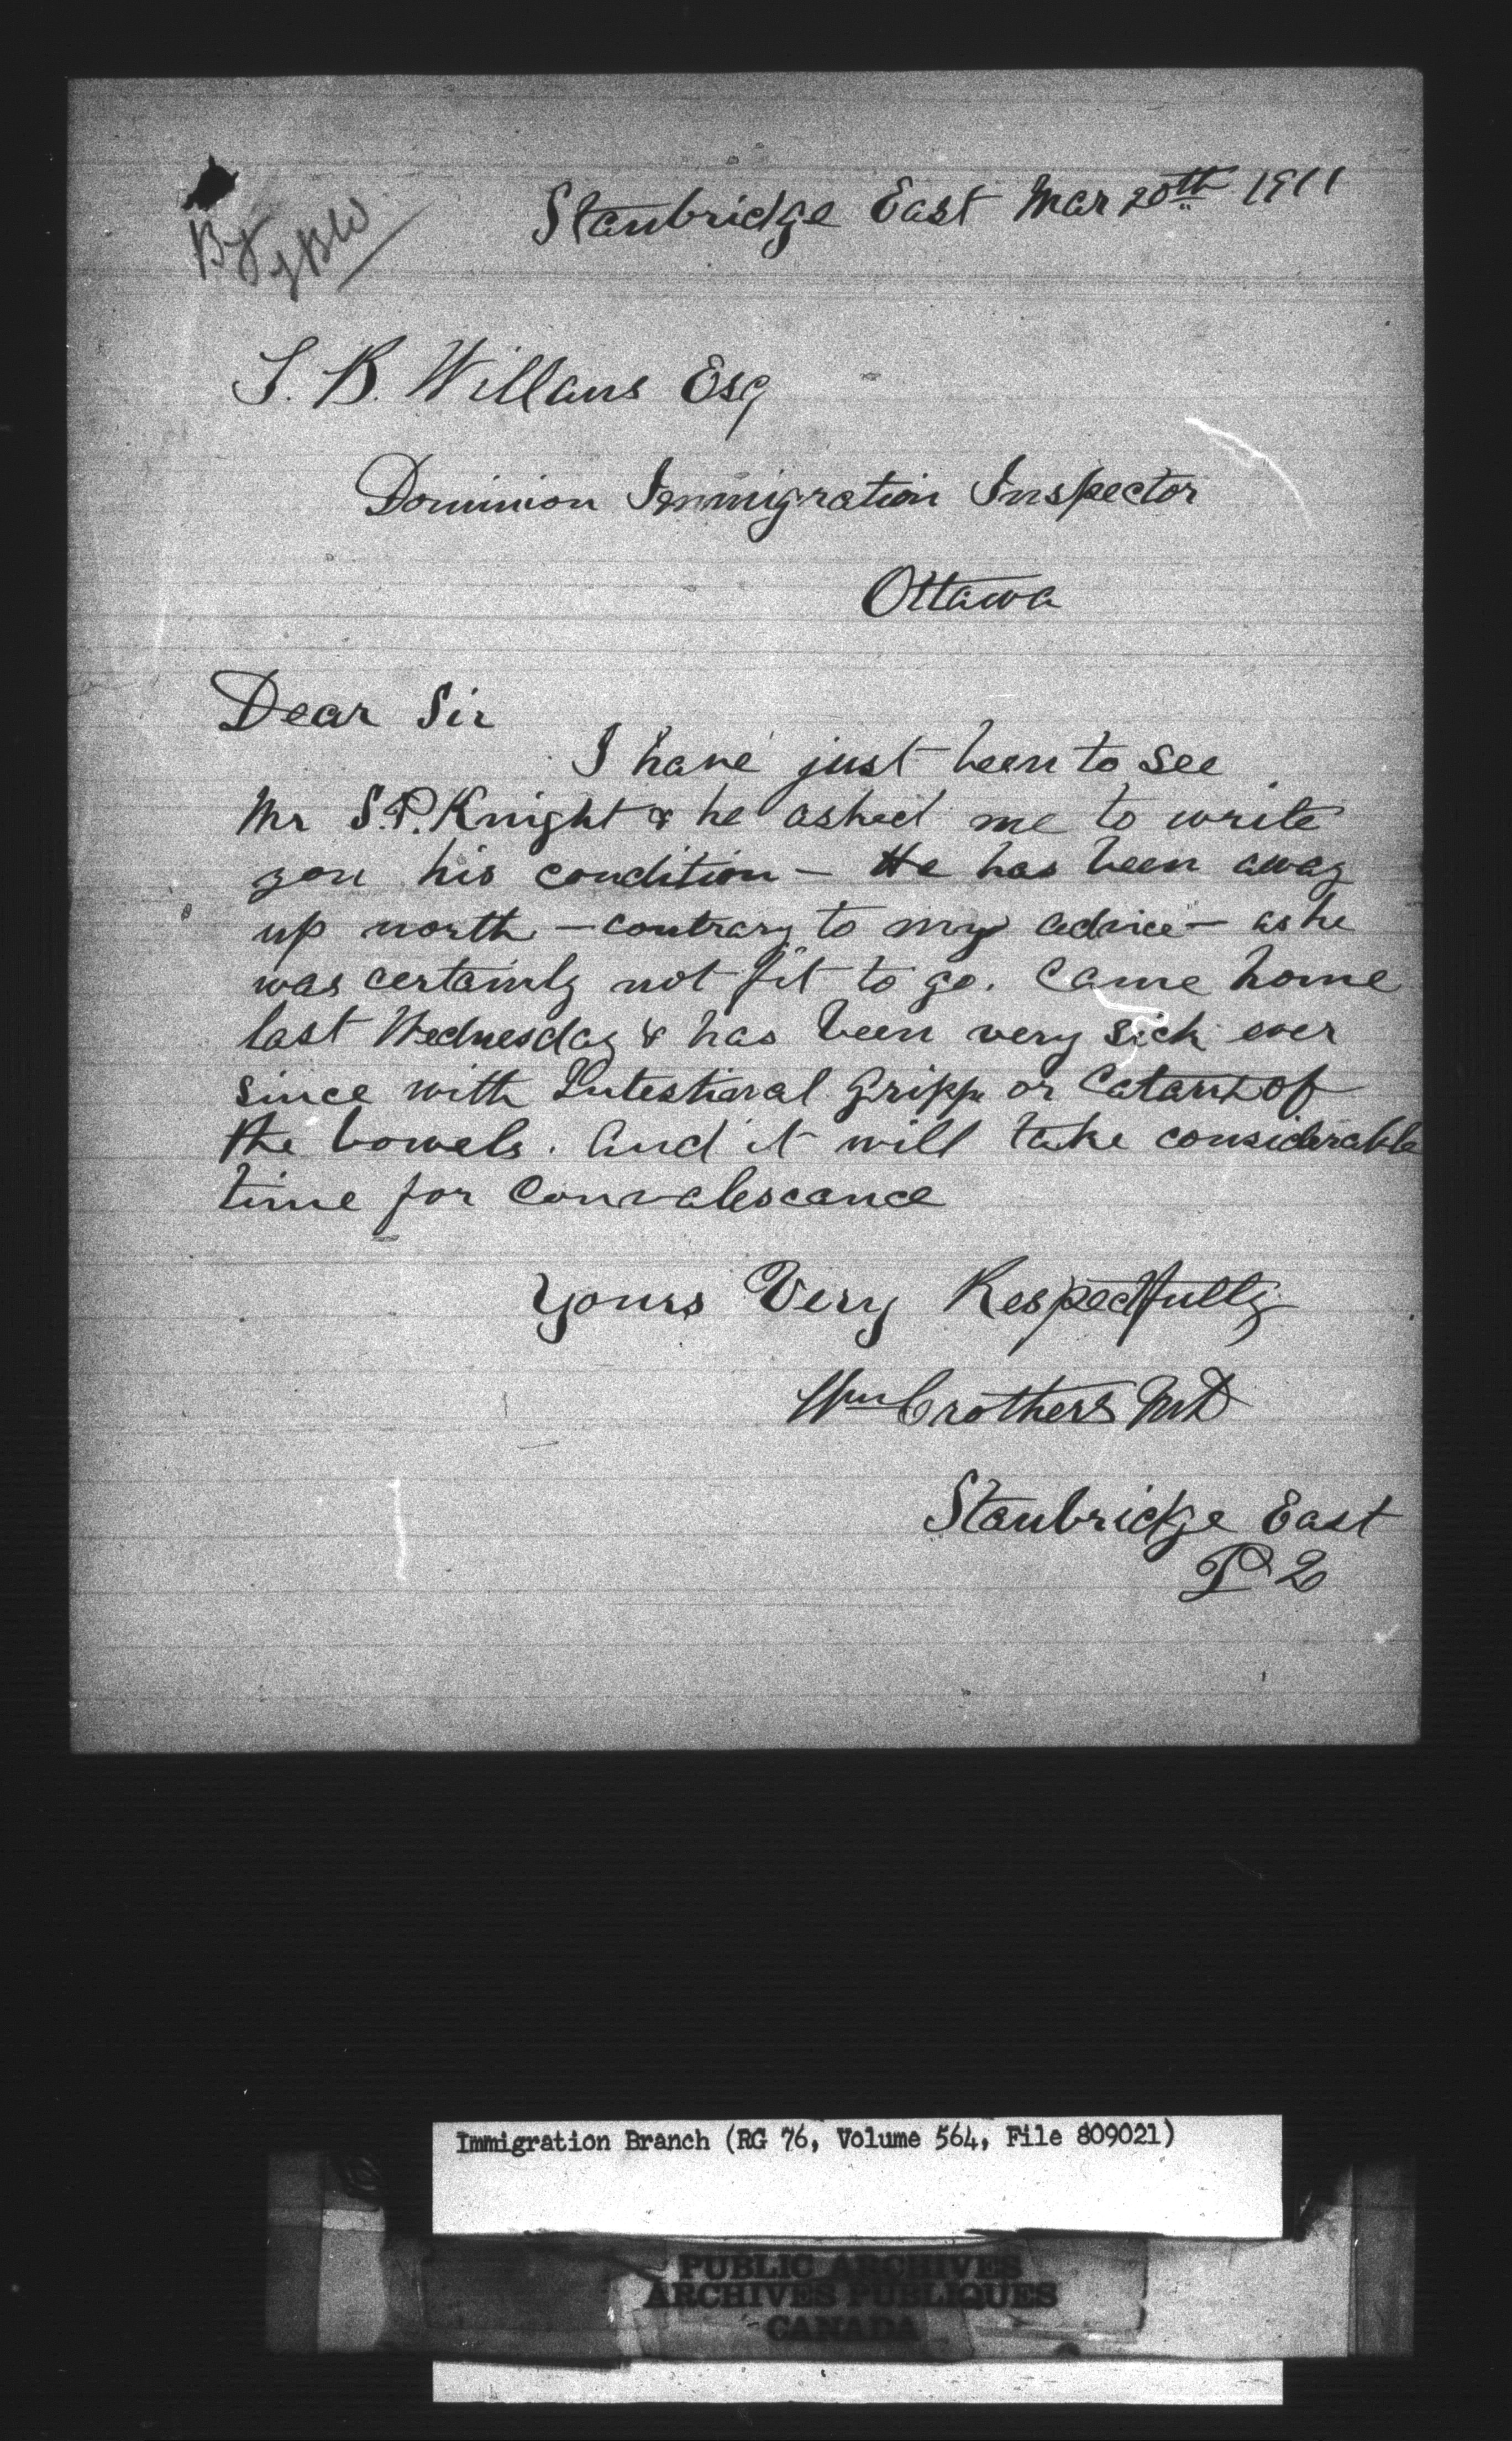 Stanbridge East Mar 20th 1911
S. B. Willans Esq
Dominion Immigration Inspector
Ottawa
Dear Sir
I have just been to see
Mr S. P. Knight & he asked me to write
you his condition – He has been away
up north – contrary to my advice – as he
was certainly not fit to go. Came home
last Wednesday & has been very sick ever
since with Intestinal Gripp or Catarrh of
the bowels. And it will take considerable
time for Convalescance
Yours Very Respectfully
Wm Crothers MD
Stanbridge East
P Q
Immigration Branch (RG 76, Volume 564, File 809021)
PUBLIC ARCHIVES
ARCHIVES PUBLIQUES
CANADA